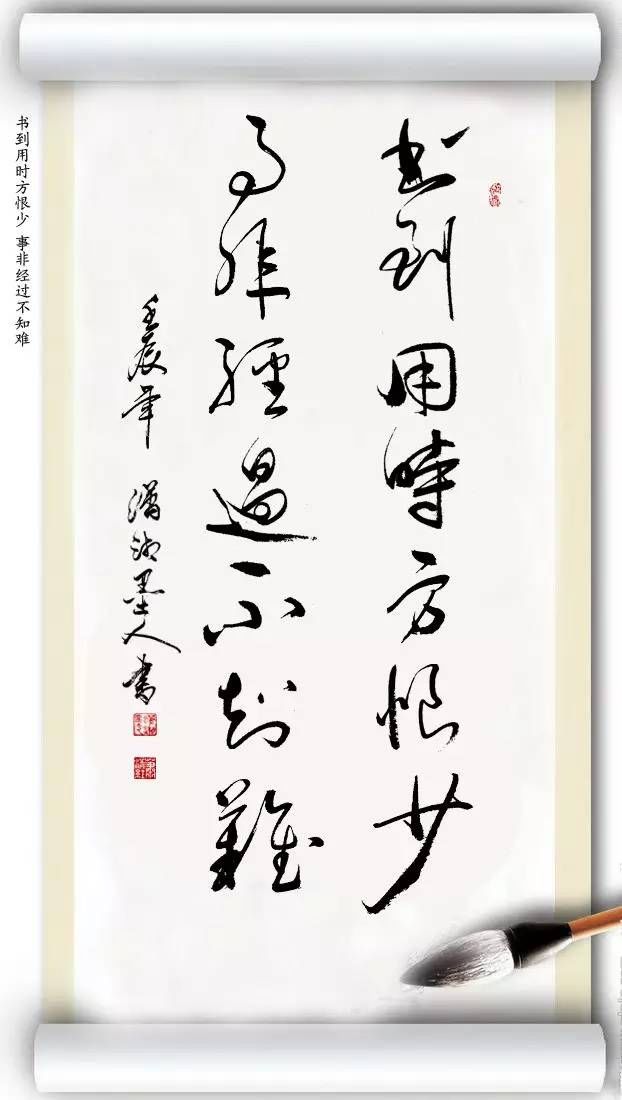 书到用时方恨少 事非经过不知难
书到用時方恨少
事非經過不知難
壬辰年 潇湘墨人書